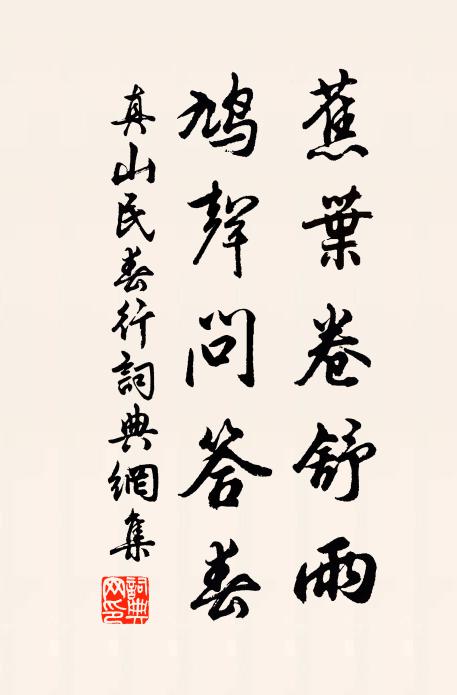 蕉葉卷舒雨
鳩聲問答春
真山民春行詞典網集
詞典網印